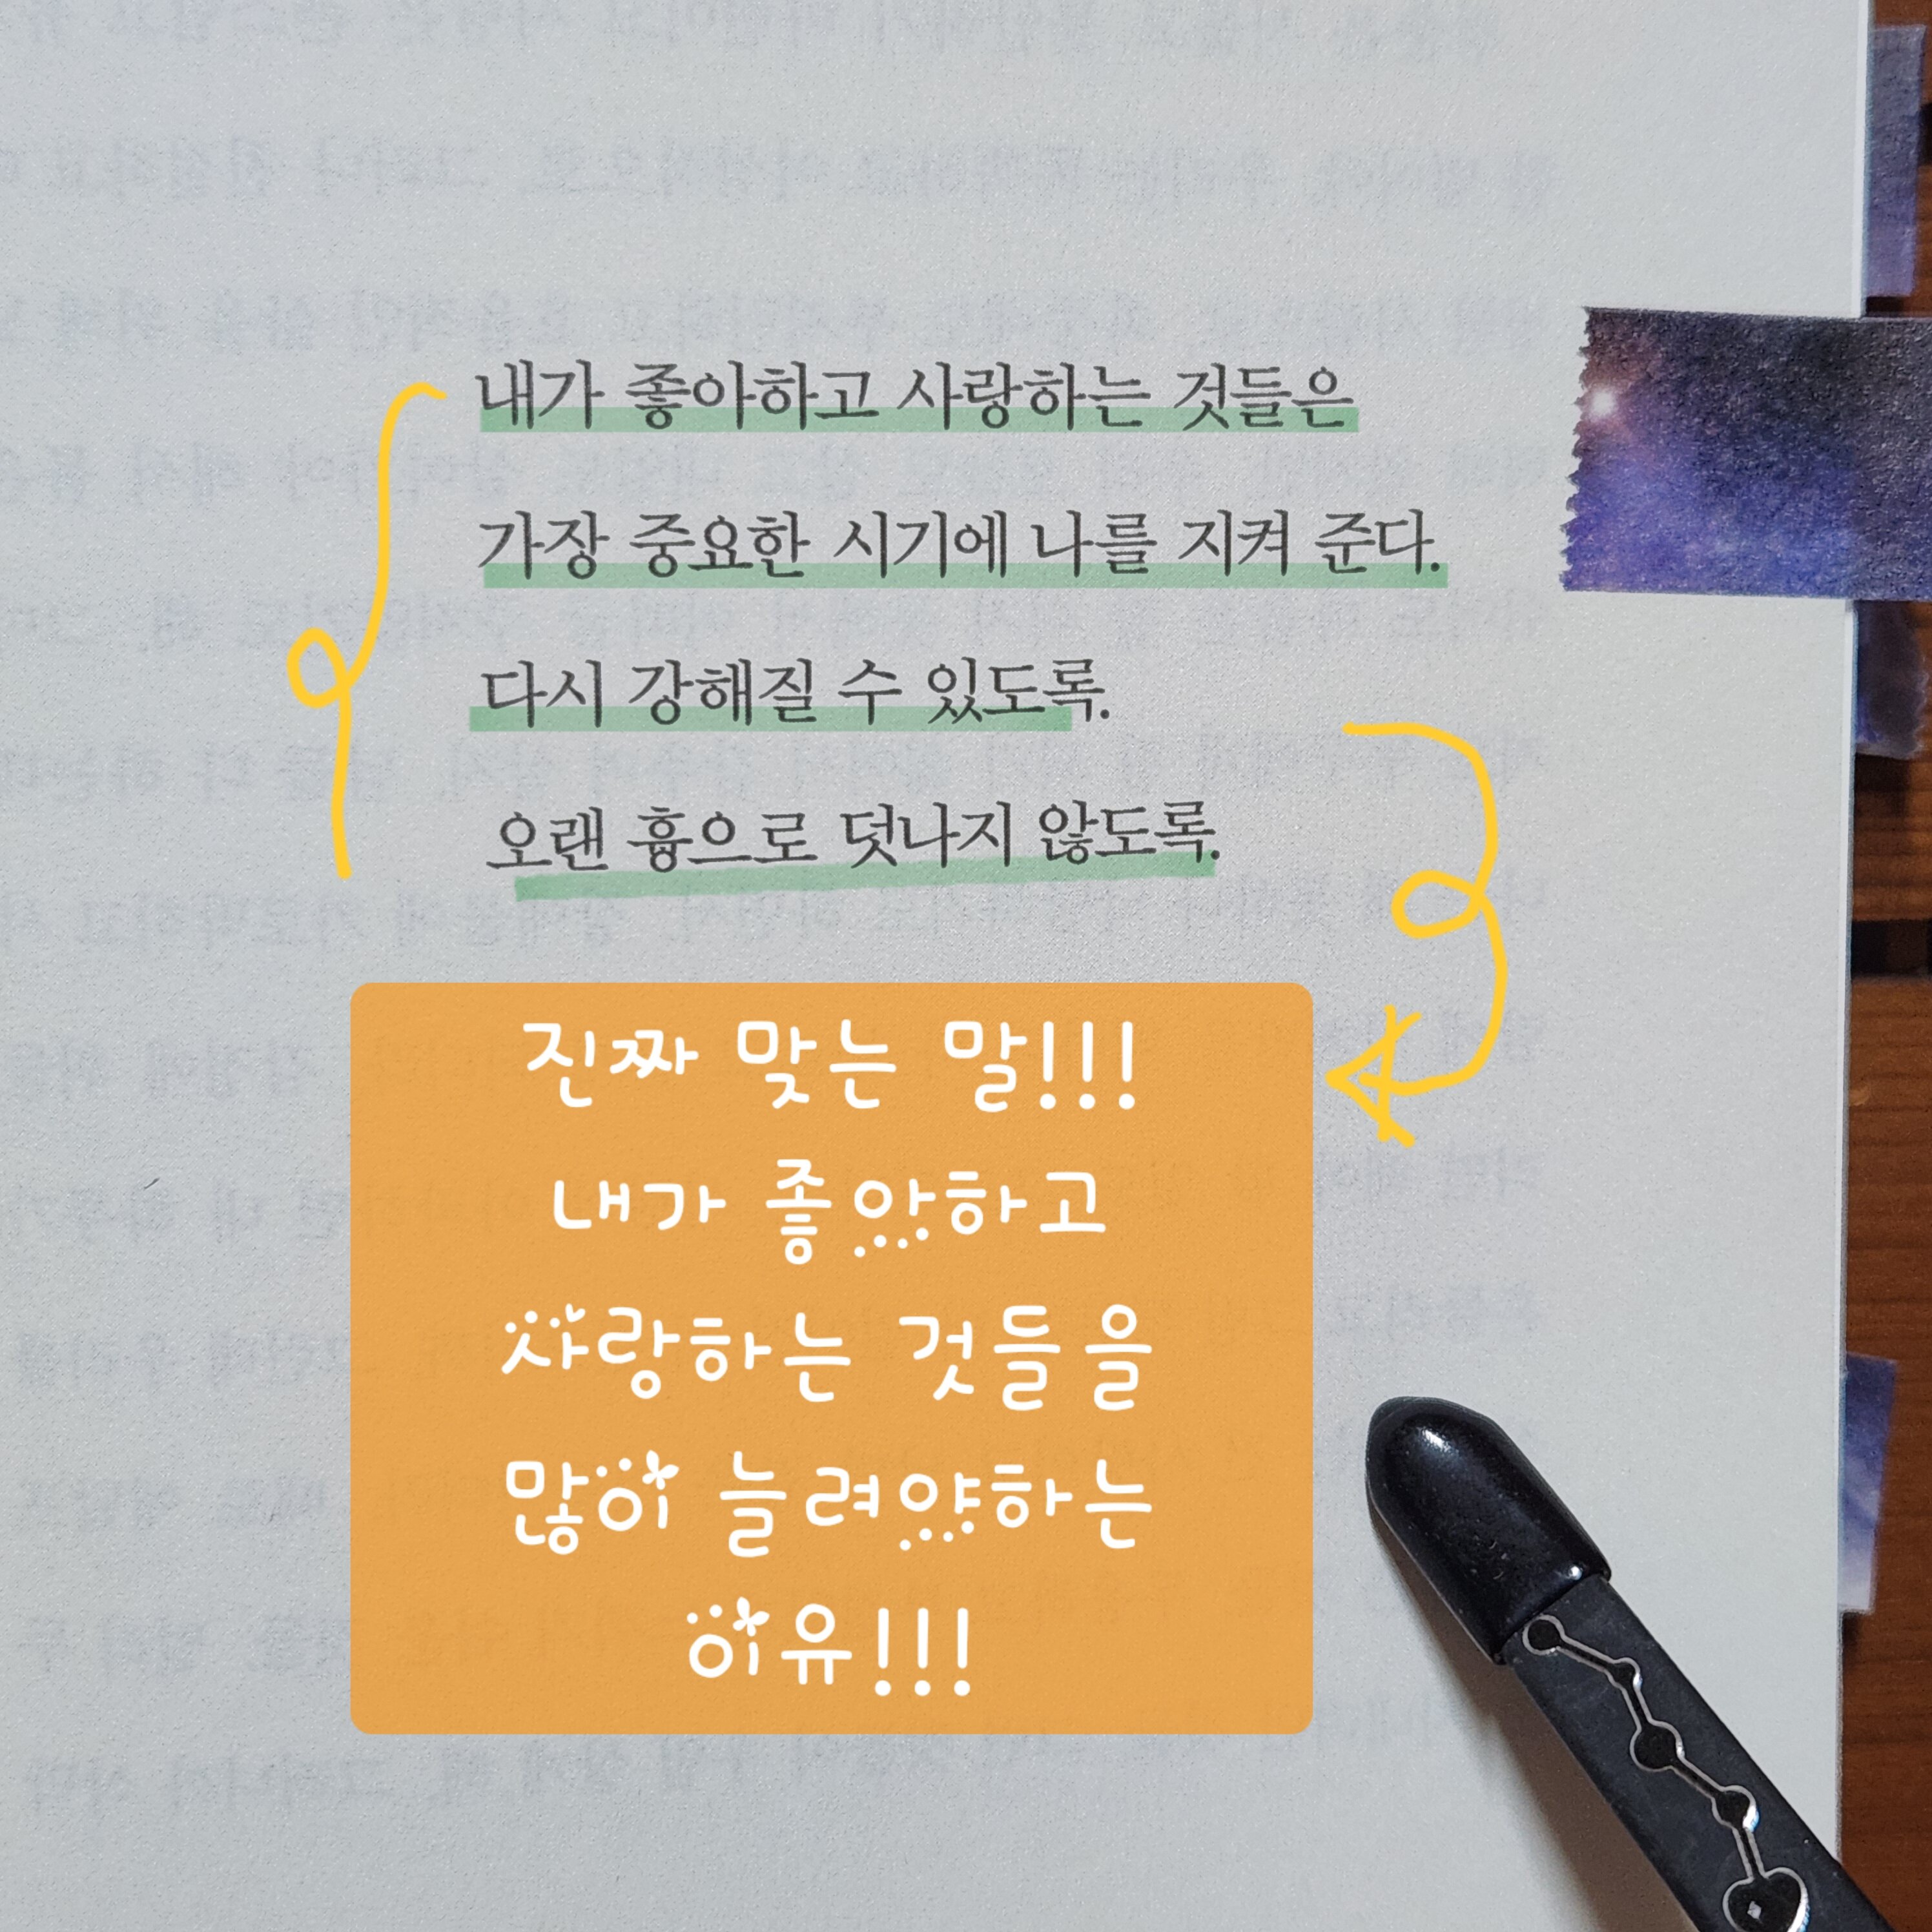 내가 좋아하고 사랑하는 것들은
가장 중요한 시기에 나를 지켜 준다.
다시 강해질 수 있도록.
오랜 흉으로 덧나지 않도록.
진짜 맞는 말!!!
내가 좋아하고
사랑하는 것들을
많이 늘려야하는
이유!!!